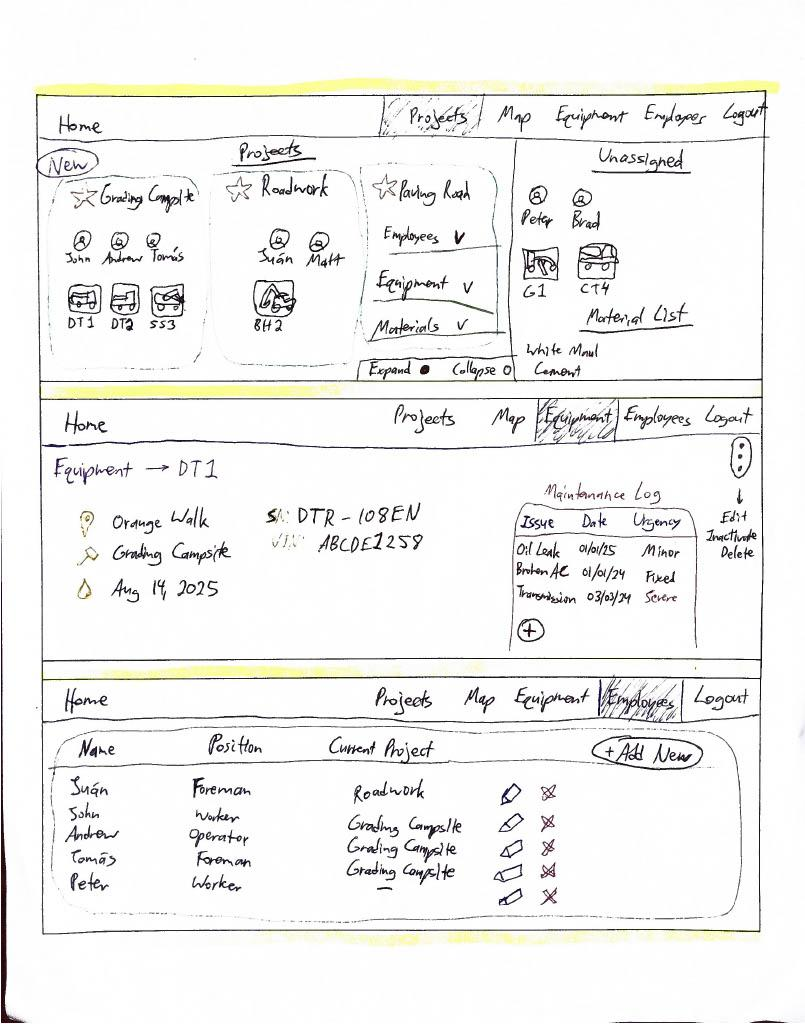 Home Projects Map Equipment Employees Logout
New
Projects
Grading Campsite
John Andrew Tomás
DT1 DT2 SS3
Roadwork
Juán Matt
BH2
Paving Road
Employees
Equipment
Materials
Expand Collapse
Unassigned
Peter Brad
G1 CT4
Material List
White Marl
Cement
Home Projects Map Equipment Employees Logout
Equipment → DT1
Orange Walk
Grading Campsite
Aug 14, 2025
SN: DTR-108EN
VIN: ABCDE1258
Maintanance Log
Issue Date Urgency
Oil Leak 01/01/25 Minor
Broken AC 01/01/24 Fixed
Transmission 03/03/24 Severe
+
Edit
Inactivate
Delete
Home Projects Map Equipment Employees Logout
Name Position Current Project + Add New
Juán Foreman Roadwork
John Worker Grading Campsite
Andrew Operator Grading Campsite
Tomás Foreman Grading Campsite
Peter Worker —